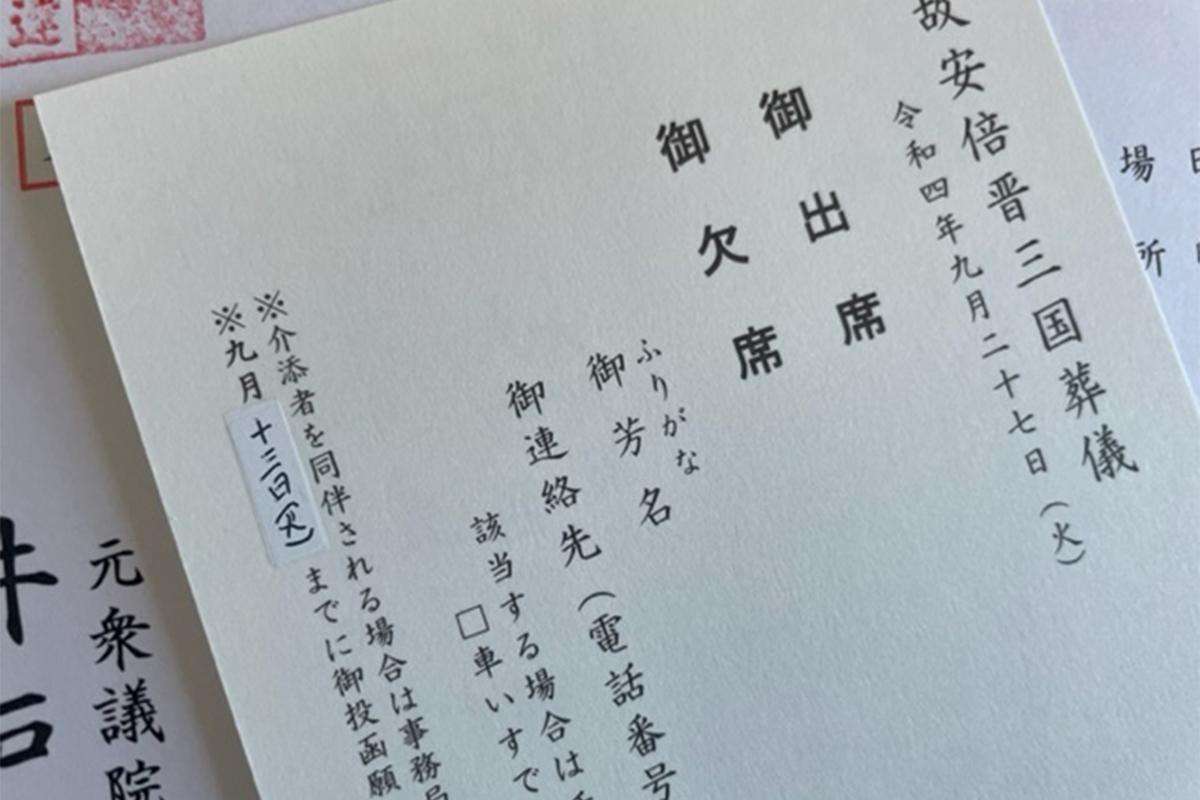 場所
故安倍晋三国葬儀
令和四年九月二十七日（火）
御出席
御欠席
ふりがな
御芳名
御連絡先（電話番号
該当する場合は
□車いすで
※介添者を同伴される場合は事務局
※九月十三日(火)までに御投函願
元衆議院